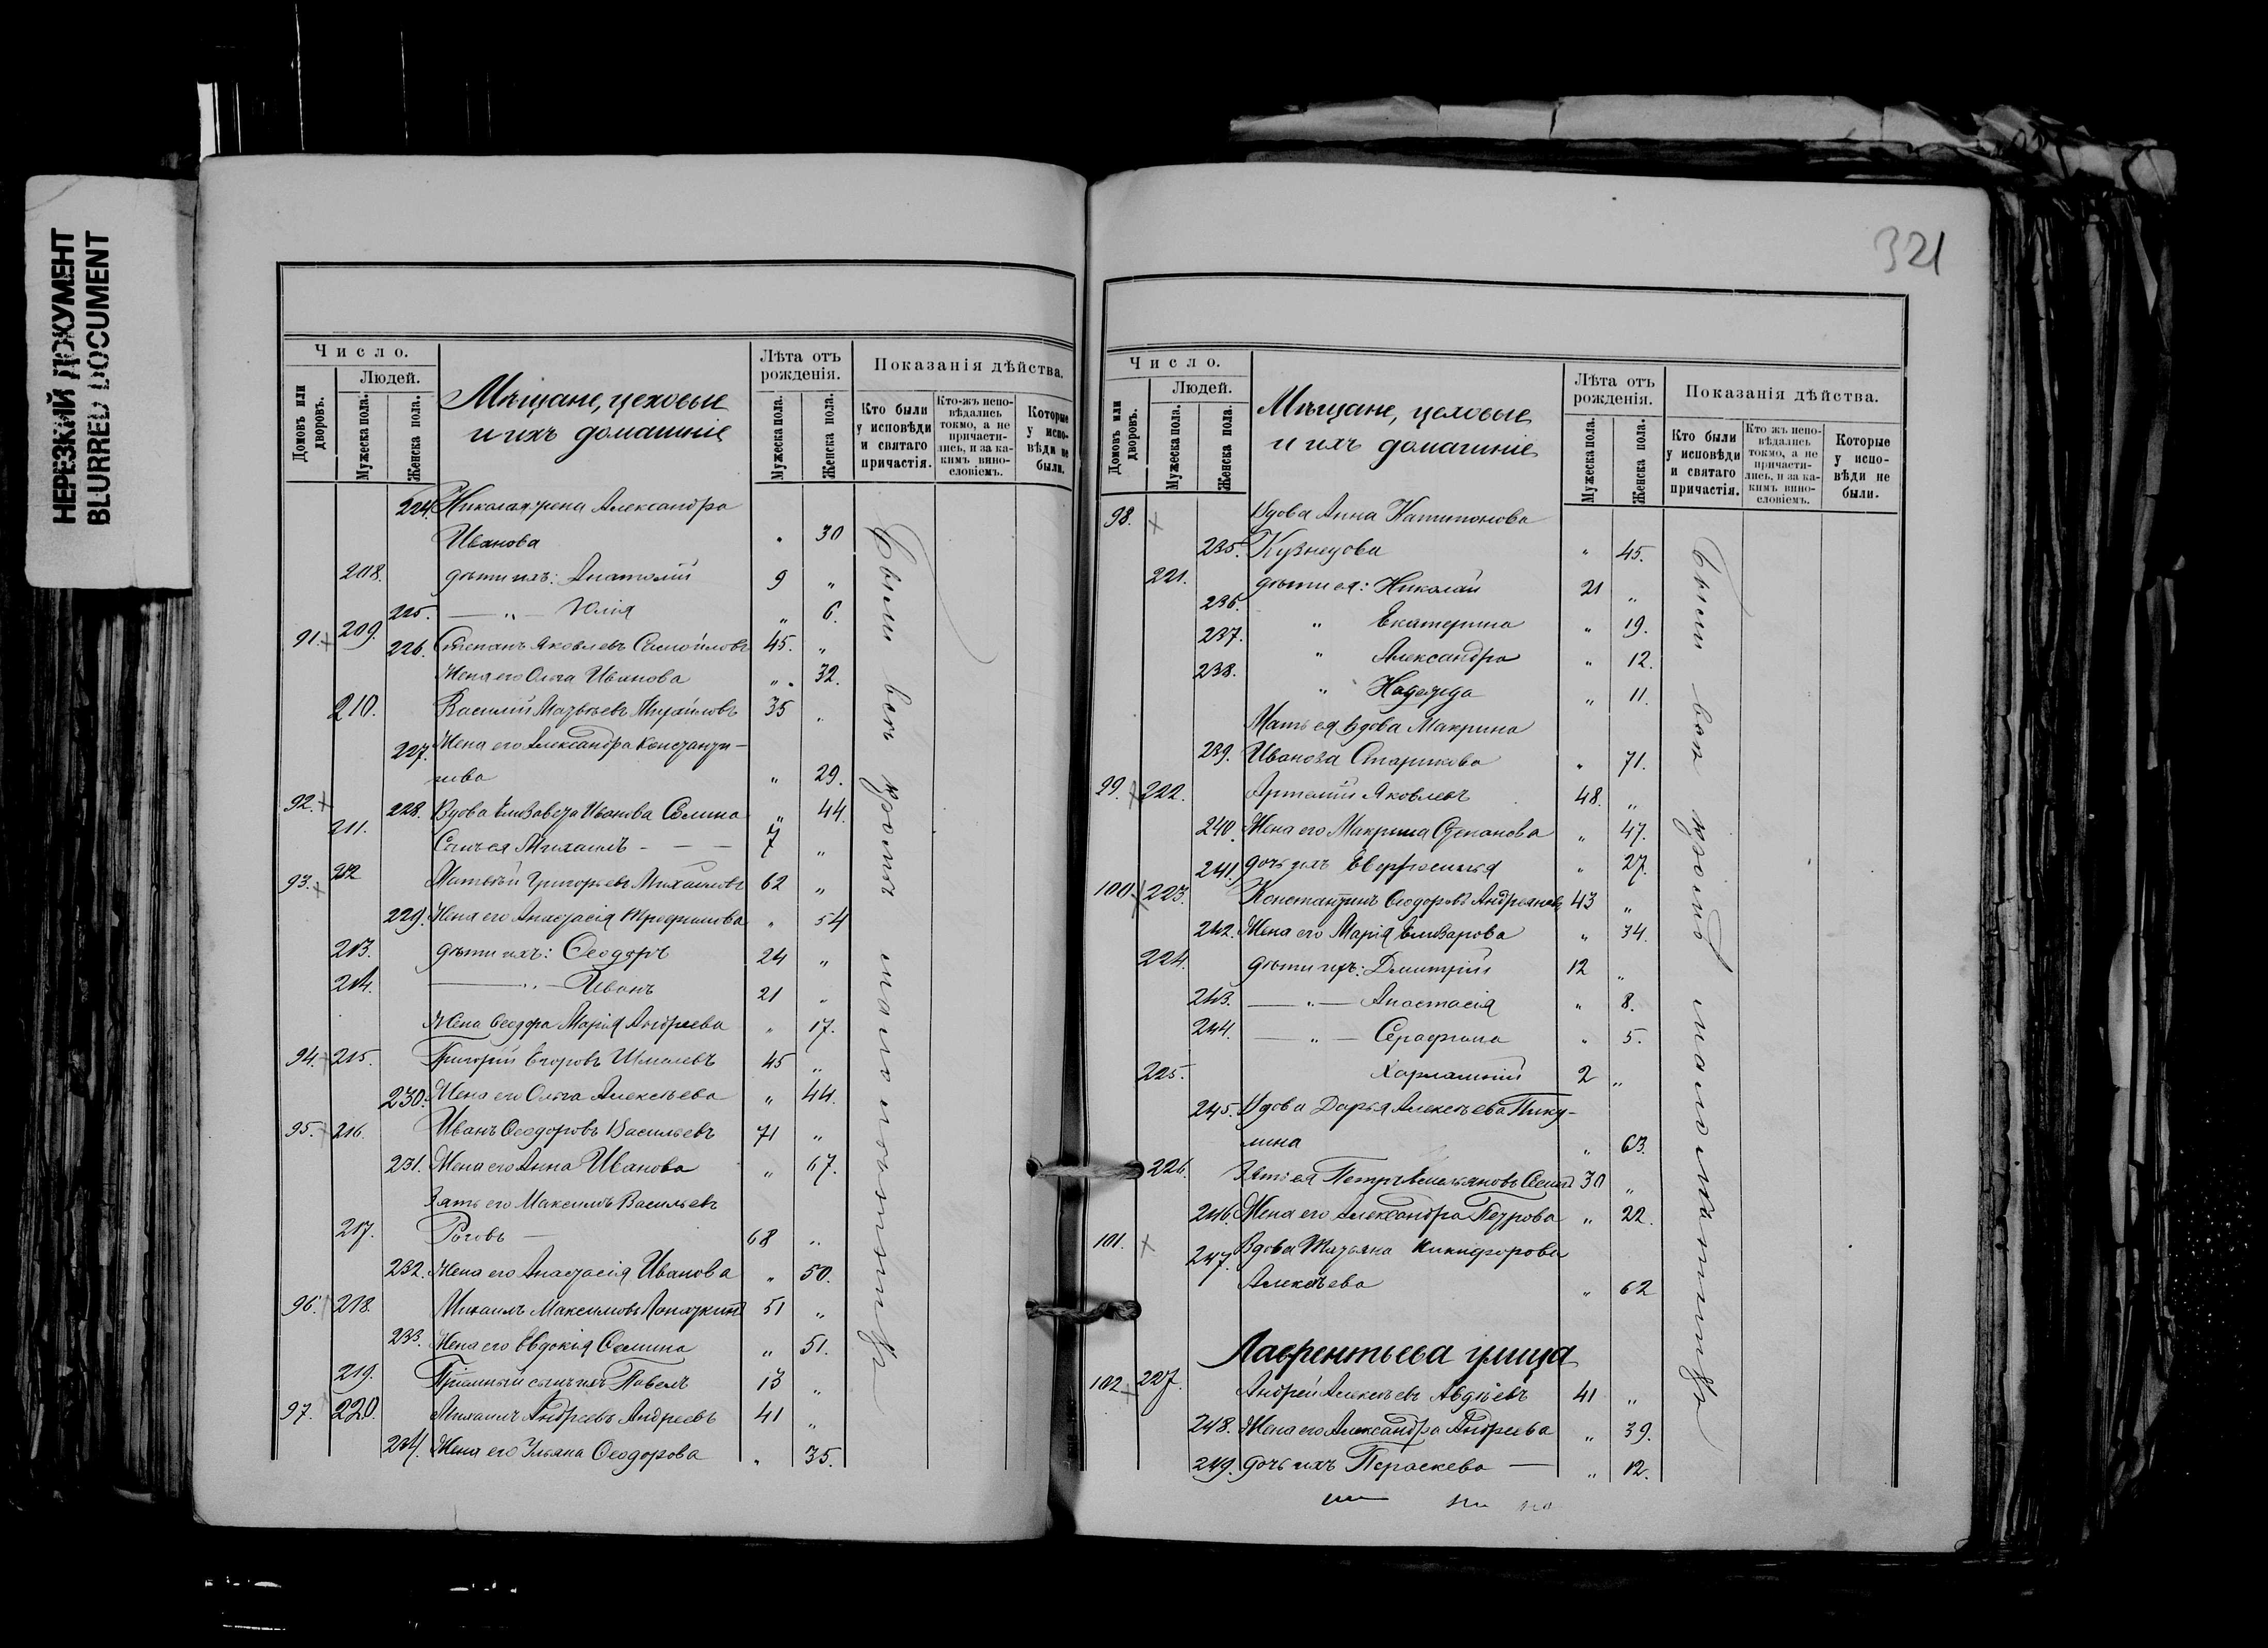 НЕРЕЗКИЙ ДОКУМЕНТ
BLURRED DOCUMENT
Число.
Людей.
Домовъ или дворовъ.
Мужеска пола.
Женска пола.
Мѣщане, цеховые
и ихъ домашніе
Лѣта отъ рожденія.
Мужеска пола.
Женска пола.
Показанія дѣйства.
Кто были у исповѣди и святаго причастія.
Кто-жъ исповѣдались токмо, а не причастились, и за какимъ винословіемъ.
Которые у исповѣди не были.
224. Николая жена Александра
Иванова " 30
208. дѣти ихъ: Анатолій 9 "
225. — " — Юлія " 6.
91. 209. Степанъ Яковлевъ Самойловъ 45. "
226. Жена его Ольга Иванова " 32.
210. Василій Матвѣевъ Михайловъ 35 "
227. Жена его Александра Константи-
нова " 29.
92. 228. Вдова Елизавета Иванова Сѣлина " 44.
211. Сынъ ея Михаилъ - — — 7 "
93. 212 Матвѣй Григорьевъ Михайловъ 62 "
229. Жена его Анастасія Трофимова " 54
213. дѣти ихъ: Ѳеодоръ 24 "
214. — " — Иванъ 21 "
Жена Ѳеодора Марія Андреева " 17.
94. 215. Григорій Егоровъ Шмалевъ 45 "
230. Жена его Ольга Алексѣева " 44.
95. 216. Иванъ Ѳеодоровъ Васильевъ 71 "
231. Жена его Анна Иванова " 67.
Зять его Максимъ Васильевъ
217. Роговъ — 68 "
232. Жена его Анастасія Иванова " 50.
96. 218. Михаилъ Максимовъ Лопаткинъ 51 "
233. Жена его Евдокія Ѳомина " 51.
219. Пріемный сынъ ихъ Павелъ 13 "
97. 220. Михаилъ Андреевъ Андреевъ 41 "
234. Жена его Ульяна Ѳеодорова " 35.
Были всѣ кромѣ малолѣтнихъ
321
Число.
Людей.
Домовъ или дворовъ.
Мужеска пола.
Женска пола.
Мѣщане, цеховые
и ихъ домашніе
Лѣта отъ рожденія.
Мужеска пола.
Женска пола.
Показанія дѣйства.
Кто были у исповѣди и святаго причастія.
Кто жъ исповѣдались токмо, а не причастились, и за какимъ винословіемъ.
Которые у исповѣди не были.
98. Вдова Анна Капитонова
235. Кузнецова " 45.
221. дѣти ея: Николай 21 "
236. " Екатерина " 19.
237. " Александра " 12.
238. " Надежда " 11.
Мать ея вдова Макрина
239. Иванова Старикова " 71.
99. 222. Артемій Яковлевъ 48. "
240. Жена его Макрина Степанова " 47.
241. дочь ихъ Евфросинья " 27.
100. 223. Константинъ Ѳеодоровъ Андреяновъ 43 "
242. Жена его Марія Елизарова " 34.
224. дѣти ихъ: Дмитрій 12 "
243. — " — Анастасія " 8.
244. — " — Серафима " 5.
225. Харлампій 2 "
245. Вдова Дарья Алексѣева Пику-
лина " 63.
226. Зять ея Петръ Емельяновъ 30 "
246. Жена его Александра Петрова " 22.
101. 247. Вдова Татьяна Никифорова
Алексѣева " 62
Лаврентьева улица
102. 227. Андрей Алексѣевъ Авдѣевъ 41 "
248. Жена его Александра Андреева " 39.
249. дочь ихъ Параскева — " 12.
Были всѣ кромѣ малолѣтнихъ